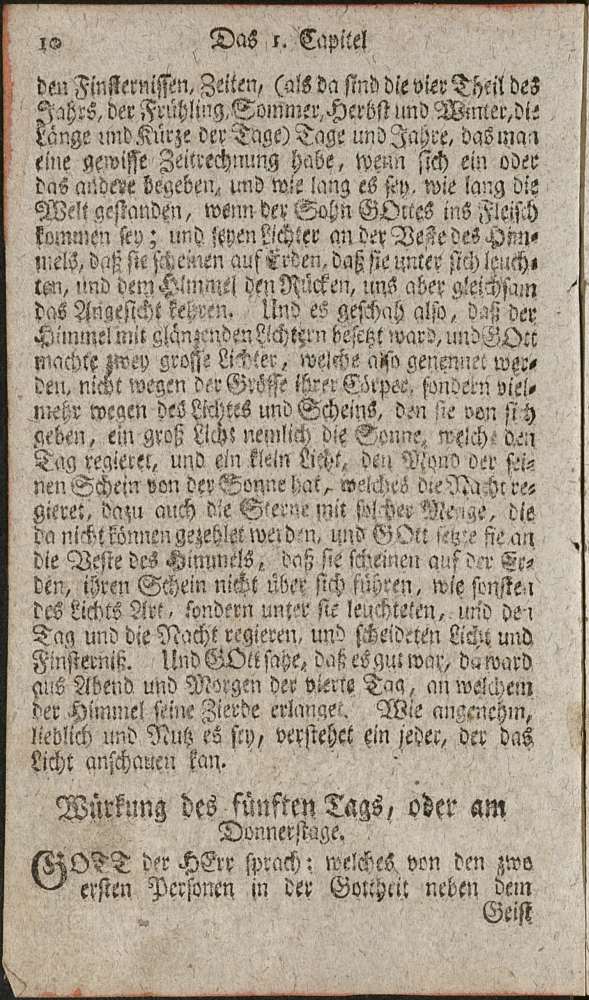 10 Das 1. Capitel
den Finsternissen, Zeiten, (als da sind die vier Theil des
Jahrs, der Frühling, Sommer, Herbst und Winter, die
Länge und Kürze der Tage) Tage und Jahre, das man
eine gewisse Zeitrechnung habe, wenn sich ein oder
das andere begeben, und wie lang es sey, wie lang die
Welt gestanden, wenn der Sohn GOttes ins Fleisch
kommen sey; und seyen Lichter an der Veste des Him-
mels, daß sie scheinen auf Erden, daß sie unter sich leuch-
ten, und dem Himmel den Rücken, uns aber gleichsam
das Angesicht kehren. Und es geschah also, daß der
Himmel mit glänzenden Lichtern besetzt ward, und GOtt
machte zwey grosse Lichter, welche also genennet wer-
den, nicht wegen der Grösse ihrer Cörper, sondern viel-
mehr wegen des Lichtes und Scheins, den sie von sich
geben, ein groß Licht nemlich die Sonne, welche den
Tag regieret, und ein klein Licht, den Mond der sei-
nen Schein von der Sonne hat, welches die Nacht re-
gieret, dazu auch die Sterne mit solcher Menge, die
da nicht können gezehlet werden, und GOtt setzte sie an
die Veste des Himmels, daß sie scheinen auf der Er-
den, ihren Schein nicht über sich führen, wie sonsten
des Lichts Art, sondern unter sie leuchteten, und den
Tag und die Nacht regieren, und scheideten Licht und
Finsterniß. Und GOtt sahe, daß es gut war, da ward
aus Abend und Morgen der vierte Tag, an welchem
der Himmel seine Zierde erlanget. Wie angenehm,
lieblich und Nutz es sey, verstehet ein jeder, der das
Licht anschauen kan.
Würkung des fünften Tags, oder am
Donnerstage.
GOTT der HErr sprach: welches von den zwo
ersten Personen in der Gottheit neben dem
Geist